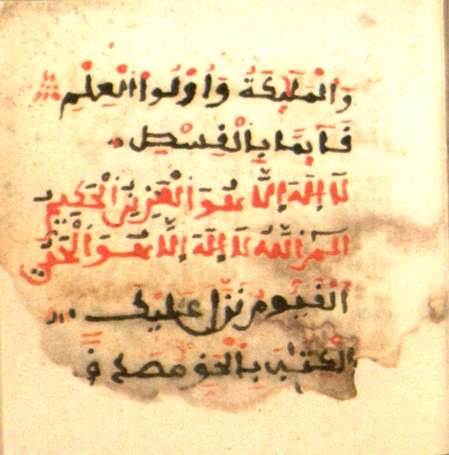 وَالْمَلَٰٓئِكَةُ وَأُوْلُوا الْعِلْمِ
قَآئِمَا بِالْقِسْطِ
لَآ إِلَٰهَ إِلَّا هُوَ الْعَزِيزُ الْحَكِيمُ
الٓمٓ اللَّهُ لَآ إِلَٰهَ إِلَّا هُوَ الْحَيُّ
الْقَيُّومُ نَزَّلَ عَلَيْكَ
الْكِتَٰبَ بِالْحَقِّ مُصَدِّ ق